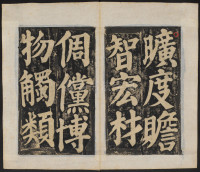 曠度贍
智宏材
倜儻博
物觸類